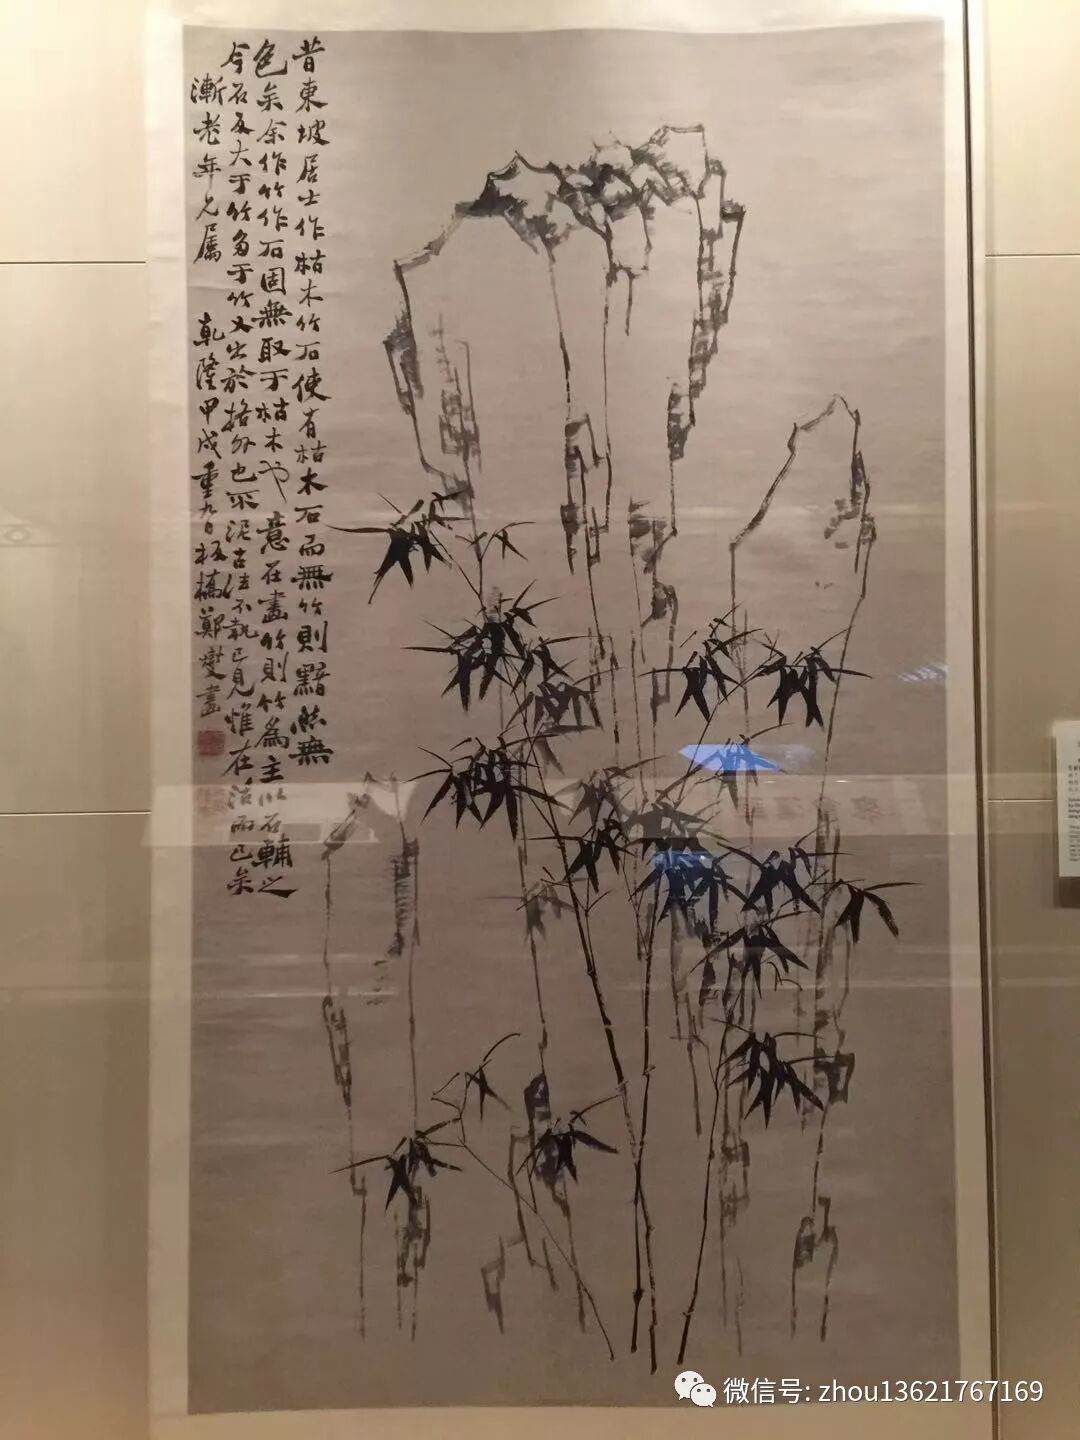 昔東坡居士作枯木竹石使有枯木石而無竹則黯然無
色矣余作竹作石固無取于枯木也意在畫竹則竹為主以石輔之
今石反大于竹多于竹又出於格外也不泥古法不執己見惟在活而已矣
漸老年兄屬 乾隆甲戌重九日板橋鄭燮畫
微信号: zhou13621767169